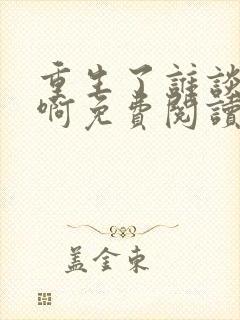 重生了誰談
啊免費閱讀
盖金東